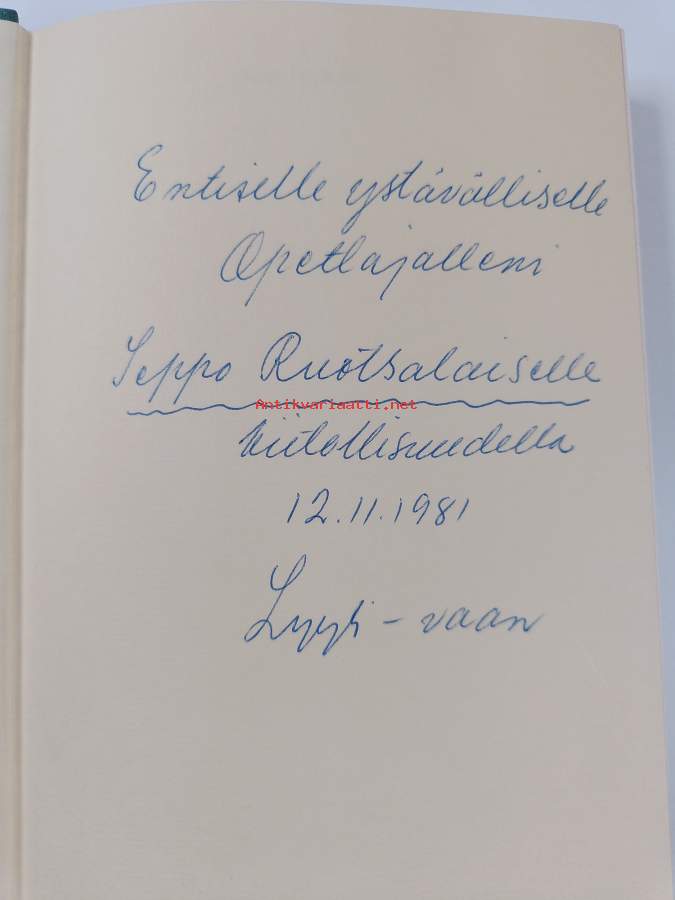 Entiselle ystävälliselle
Opettajalleni
Seppo Ruotsalaiselle
Antikvariaatti.net
kiitollisuudella
12.11.1981
Lyyli - vaan